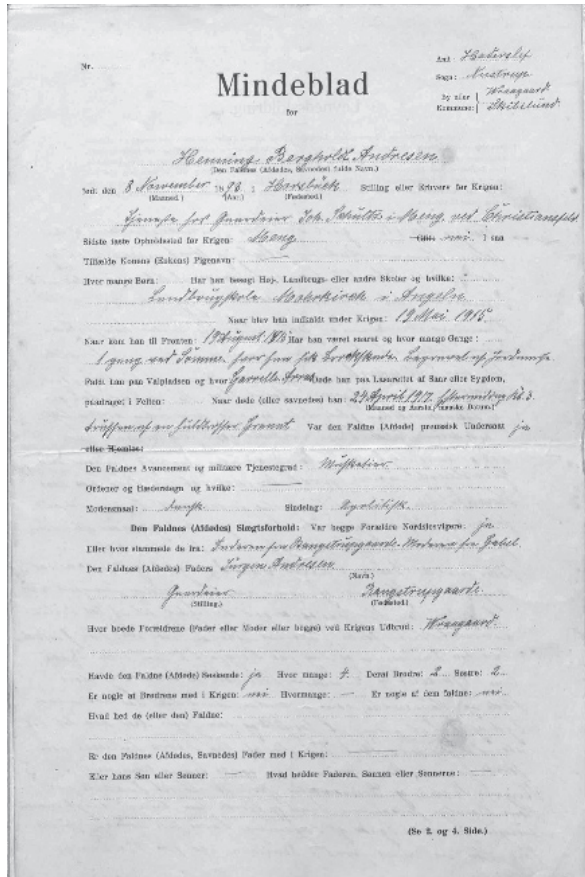 Nr.
Amt Haderslev
Sogn: Nustrup
Mindeblad
By eller Kommune: Vraagaard Skibelund
for
Henning Bergholt Andresen
(Den Faldnes (Afdødes, Savnedes) fulde Navn.)
født den 8 November 1893 i Horsbüll Stilling eller Erhverv før Krigen:
(Maaned.) (Aar.) (Fødested.)
Tjeneste hos Gaardeier Joh. Schultz i Meng ved Christiansfeld
Sidste faste Opholdssted før Krigen: Meng Gift: nei I saa
Tilfælde Konens (Enkens) Pigenavn:
Hvor mange Børn: Har han besøgt Høj-, Landbrugs- eller andre Skoler og hvilke:
Landbrugskole Mohrkirch i Angeln
Naar blev han indkaldt under Krigen: 19 Mai 1915
Naar kom han til Fronten: 19 August 1915 Har han været saaret og hvor mange Gange:
1 gang ved Somme
Faldt han paa Valpladsen og hvor Døde han paa Lasarettet af Saar eller Sygdom,
paadraget i Felten: Naar døde (eller savnedes) han: 24 April 1917 Eftermiddag Kl. 3.
truffen af en Granat Var den Faldne (Afdøde) preussisk Undersaat ja
eller Hjemløs:
Den Faldnes Avancement og militære Tjenestegrad: Musketier
Ordener og Hæderstegn og hvilke:
Modersmaal: dansk Sindelag: Apolitisk
Den Faldnes (Afdødes) Slægtsforhold: Var begge Forældre Nordslesvigere: ja
Eller hvor stammede de fra: Faderen fra Bangstrupgaarde Moderen fra Gabel
Den Faldnes (Afdødes) Faders Jürgen Andresen
(Navn.)
Gaardeier Bangstrupgaarde
(Stilling.) (Fødested.)
Hvor boede Forældrene (Fader eller Moder eller begge) ved Krigens Udbrud: Vraagaard
Havde den Faldne (Afdøde) Søskende: ja Hvor mange: 4. Deraf Brødre: 2 Søstre: 2
Er nogle af Brødrene med i Krigen: nei Hvormange: — Er nogle af dem faldne: nei
Hvad hed de (eller den) Faldne:
Er den Faldnes (Afdødes, Savnedes) Fader med i Krigen:
Eller hans Søn eller Sønner: Hvad hedder Faderen, Sønnen eller Sønnerne:
(Se 2. og 4. Side.)